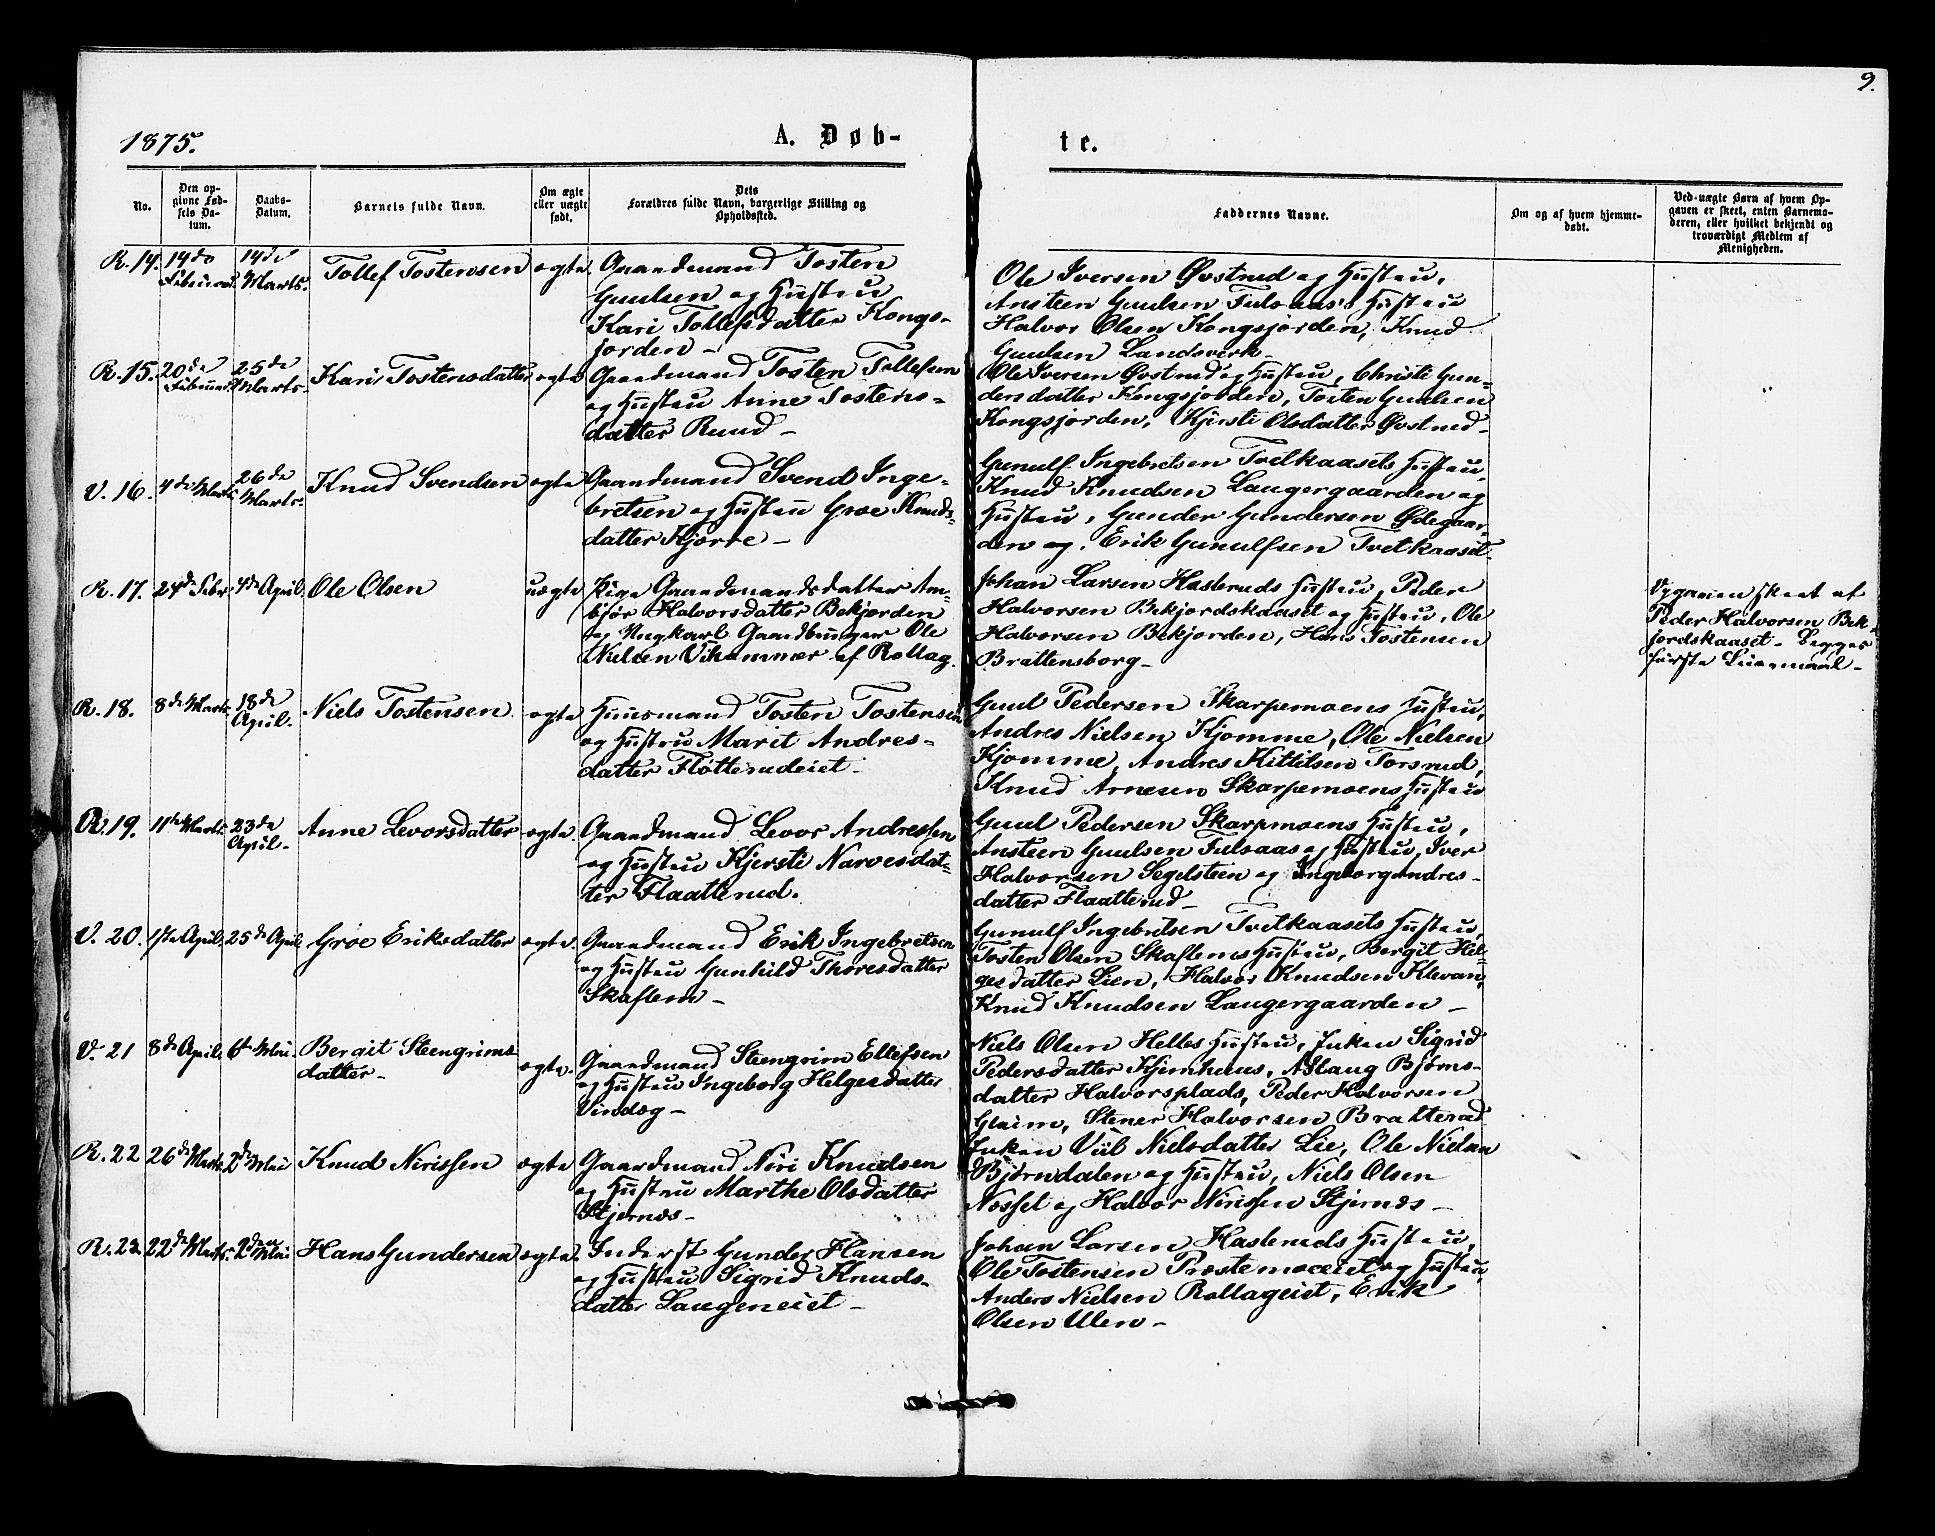 9.
1875.
A. Døb-
te.
No.
Den op-
givne Fød-
sels Da-
tum.
Daabs-
Datum.
Barnets fulde Navn.
Om ægte
eller uægte
født.
Dets
Forældres fulde Navn, borgerlige Stilling og
Opholdssted.
Faddernes Navne.
Om og af hvem hjemme-
døbt.
Ved uægte Børn af hvem Op-
gaven er skeet, enten Barnemo-
deren, eller hvilket bekjendt og
troværdigt Medlem af
Menigheden.
R. 14.
14de
Februar.
14de
Marts.
Tollef Tostensen
ægte.
Gaardmand Tosten
Guulsen og Hustru
Kari Tollefsdatter Kongs-
jorden -
Ole Iversen Øvstrud og Hustru,
Ansteen Guulsen Fulsaas's Hustru
Halvor Olsen Kongsjorden, Knud
Guulsen Landsverk -
R. 15.
20de
Februar.
25de
Marts.
Kari Tostensdatter
ægte
Gaardmand Tosten Tollefsen
og Hustru Anne Tostens-
datter Ruud -
Ole Iversen Øvstrud og Hustru, Christi Gun-
dersdatter Kongsjorden, Tosten Guulsen
Kongsjorden, Kjersti Olsdatter Øvstrud -
V. 16.
4de Marts
26de
Marts.
Knud Svendsen
ægte
Gaardmand Svend Inge-
bretsen og Hustru Groe Knuds-
datter Kjørre -
Gunulf Ingebretsen Tvetkaasets Hustru,
Knud Knudsen Laugergaarden og
Hustru, Gunder Gundersen Ødegaar-
den og Erik Gunulfsen Tvetkaaset -
R. 17.
24de Febr.
4de April.
Ole Olsen
uægte
Pige Gaardmandsdatter Am-
bjør Halvorsdatter Bekjorden
og Ungkarl Gaardbruger Ole
Nielsen Vihammer af Rollag.
Johan Larsen Hasleruds Hustru, Peder
Halvorsen Bekjordskaaset og Hustru, Ole
Halvorsen Bekjorden, Hans Tostensen
Brattensborg -
Opgaven skeet af
Peder Halvorsen Bek-
jordskaaset - Begges
første Leiermaal -
R. 18.
8de Marts
18de
April.
Niels Tostensen
ægte
Huusmand Tosten Tostensen
og Hustru Marit Andres-
datter Fløtterudeiet -
Guul Pedersen Skarpemoens Hustru,
Andres Nielsen Kjomme, Ole Nielsen
Kjomme, Andres Kittilsen Torsrud,
Knud Arnesen Skarpemoens Hustru
R. 19.
11te Marts
23de
April -
Anne Levorsdatter
ægte.
Gaardmand Levor Andressen
og Hustru Kjersti Narvesdat-
ter Flaatterud.
Guul Pedersen Skarpmoens Hustru,
Ansteen Guulsen Fulsaas og Hustru, Iver
Halvorsen Segelsteen og Ingeborg Andres-
datter Flaatterud -
V. 20.
1ste April.
25de April
Groe Eriksdatter
ægte.
Gaardmand Erik Ingebretsen
og Hustru Gunhild Thoresdatter
Skaflem -
Gunulf Ingebretsen Tvetkaasets Hustru,
Tosten Olsen Skaflems Hustru, Bergit Hel-
gesdatter Lien, Halvor Knudsen Klevan,
Knud Knudsen Laugergaarden -
V. 21
8de April
6te Mai.
Bergit Steengrims-
datter -
ægte.
Gaardmand Steengrim Ellefsen
og Hustru Ingeborg Helgesdatter
Vindeg -
Niels Olsen Helles Hustru, Enken Sigrid
Pedersdatter Kjernhuus, Aslaug Bjørns-
datter Halvorsplads, Peder Halvorsen
Glaim, Stener Halvorsen Bratterud
R. 22
26de Marts
2de Mai
Knud Nirissen
ægte
Gaardmand Niri Knudsen
og Hustru Marthe Olsdatter
Stjernæs -
Enken Viil Nielsdatter Lie, Ole Nielsen
Bjørndalen og Hustru, Niels Olsen
Næsset og Halvor Nirissen Stjernæs -
R. 23.
22de Marts.
2den Mai
Hans Gundersen
ægte.
Inderst Gunder Hansen
og Hustru Sigrid Knuds-
datter Laugeneiet -
Johan Larsen Hasleruds Hustru,
Ole Tostensen Prestemoeiet og Hustru,
Anders Nielsen Rollageiet, Erik
Olsen Ulen -